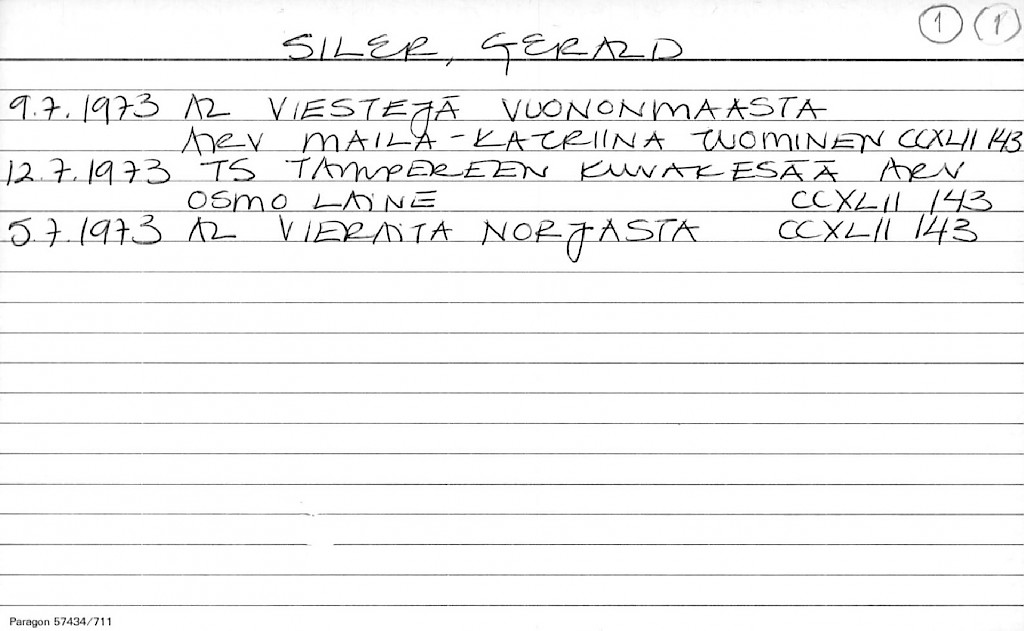 1 1
SILER, GERALD
9.7.1973 AL VIESTEJÄ VUONONMAASTA
ARV MAILA-KATRIINA TUOMINEN CCXLII 143
12.7.1973 TS TAMPEREEN KUVAKESÄÄ ARV
OSMO LAINE CCXLII 143
5.7.1973 AL VIERAITA NORJASTA CCXLII 143
Paragon 57434/711